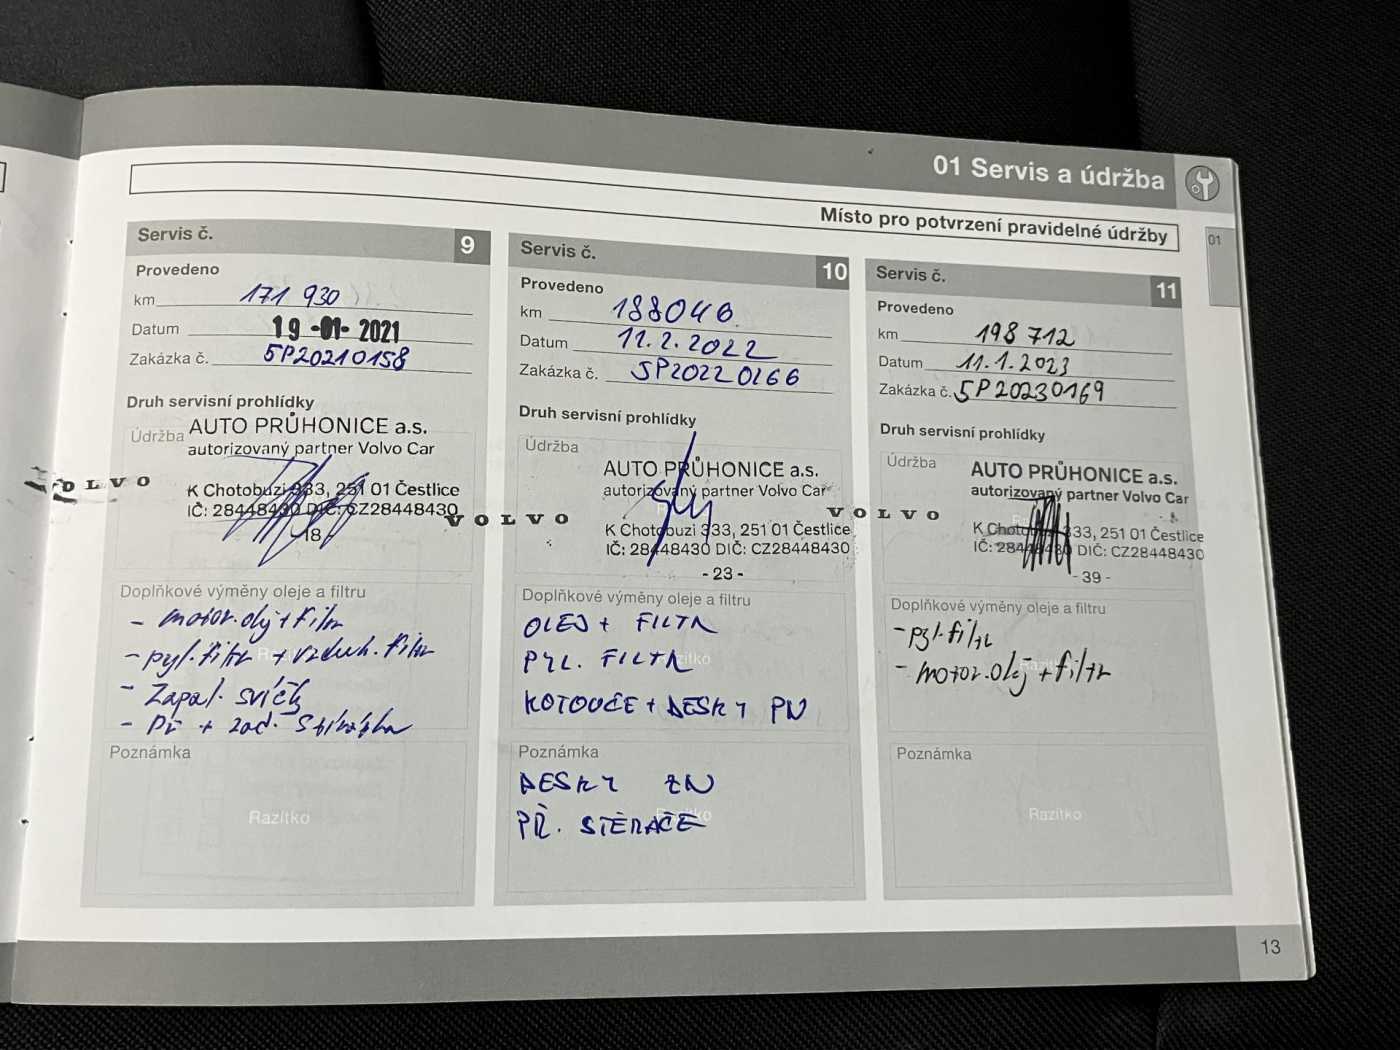 01 Servis a údržba
Místo pro potvrzení pravidelné údržby
01
Servis č. 9
Provedeno
km 171 930
Datum 19-01-2021
Zakázka č. SP20210158
Druh servisní prohlídky
Údržba
AUTO PRŮHONICE a.s.
autorizovaný partner Volvo Car
VOLVO
K Chotobuzi 333, 251 01 Čestlice
IČ: 28448430 DIČ: CZ28448430
18
Doplňkové výměny oleje a filtru
- motor.olej + filtr
- pyl.filtr + vzduch.filtr
- Zapal. svíčky
- Př + zad. Stírátka
Poznámka
Razítko
Servis č. 10
Provedeno
km 188046
Datum 11.2.2022
Zakázka č. SP20220266
Druh servisní prohlídky
Údržba
AUTO PRŮHONICE a.s.
autorizovaný partner Volvo Car
VOLVO
K Chotobuzi 333, 251 01 Čestlice
IČ: 28448430 DIČ: CZ28448430
- 23 -
Doplňkové výměny oleje a filtru
OLEJ + FILTR
PYL. FILTR
KOTOUČE + DESKY PN
Poznámka
DESKY ZN
PŘ. STĚRAČE
Servis č. 11
Provedeno
km 198 712
Datum 11.1.2023
Zakázka č. SP20230169
Druh servisní prohlídky
Údržba
AUTO PRŮHONICE a.s.
autorizovaný partner Volvo Car
VOLVO
K Chotobuzi 333, 251 01 Čestlice
IČ: 28448430 DIČ: CZ28448430
- 39 -
Doplňkové výměny oleje a filtru
- pyl.filtr
- motor.olej + filtr
Poznámka
Razítko
13